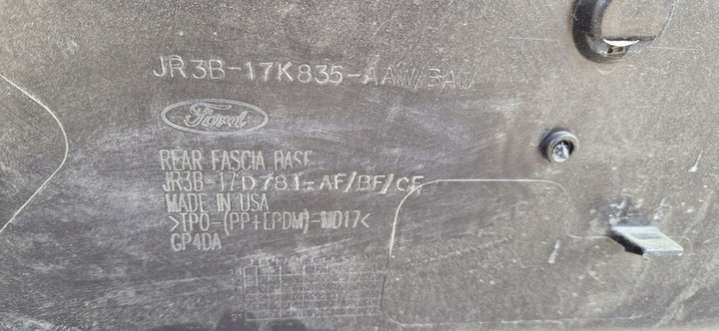 JR3B-17K835-AAW/BAW
Ford
REAR FASCIA BASE
JR3B-17D781-AF/BF/CF
MADE IN USA
>TPO-(PP+EPDM)-MD17<
GP4DA